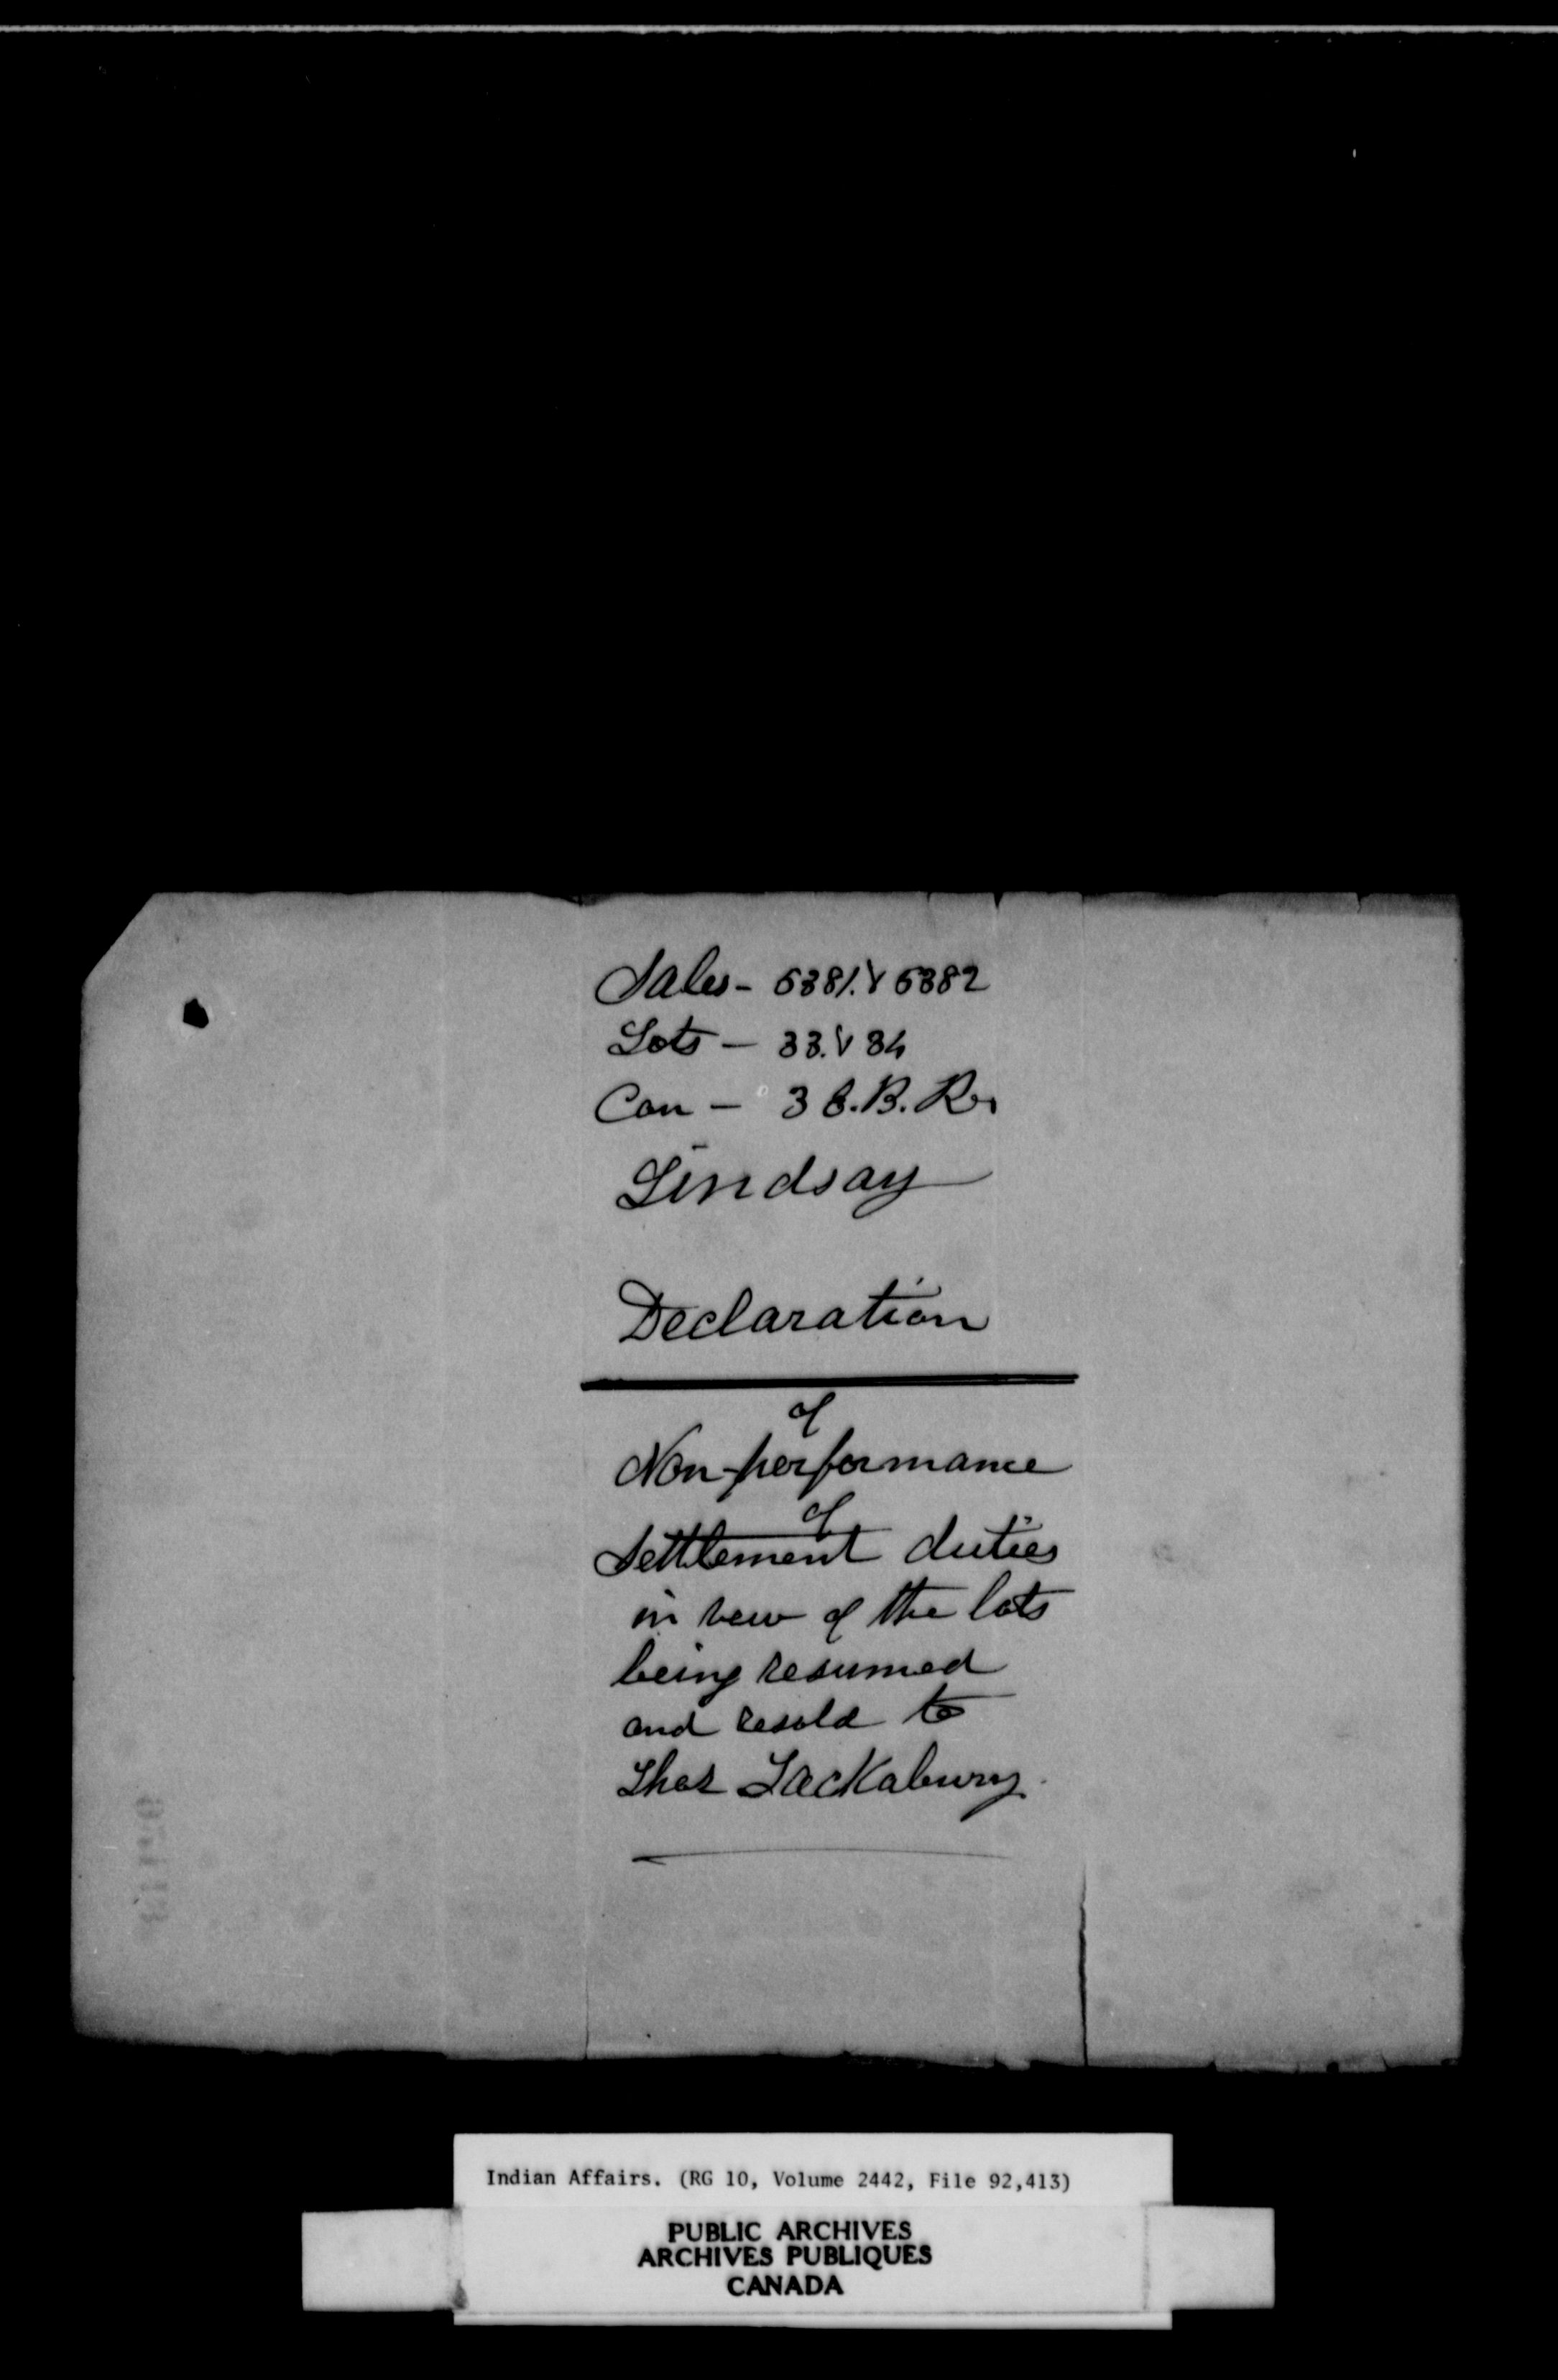 Sales - 6381. & 6382
Lots - 33. & 34
Con - 3 E.B.R.
Lindsay
Declaration
of
Non-performance
of
Settlement duties
in veiw of the lots
being resumed
and resold to
Thos Lackabury.
Indian Affairs. (RG 10, Volume 2442, File 92,413)
PUBLIC ARCHIVES
ARCHIVES PUBLIQUES
CANADA